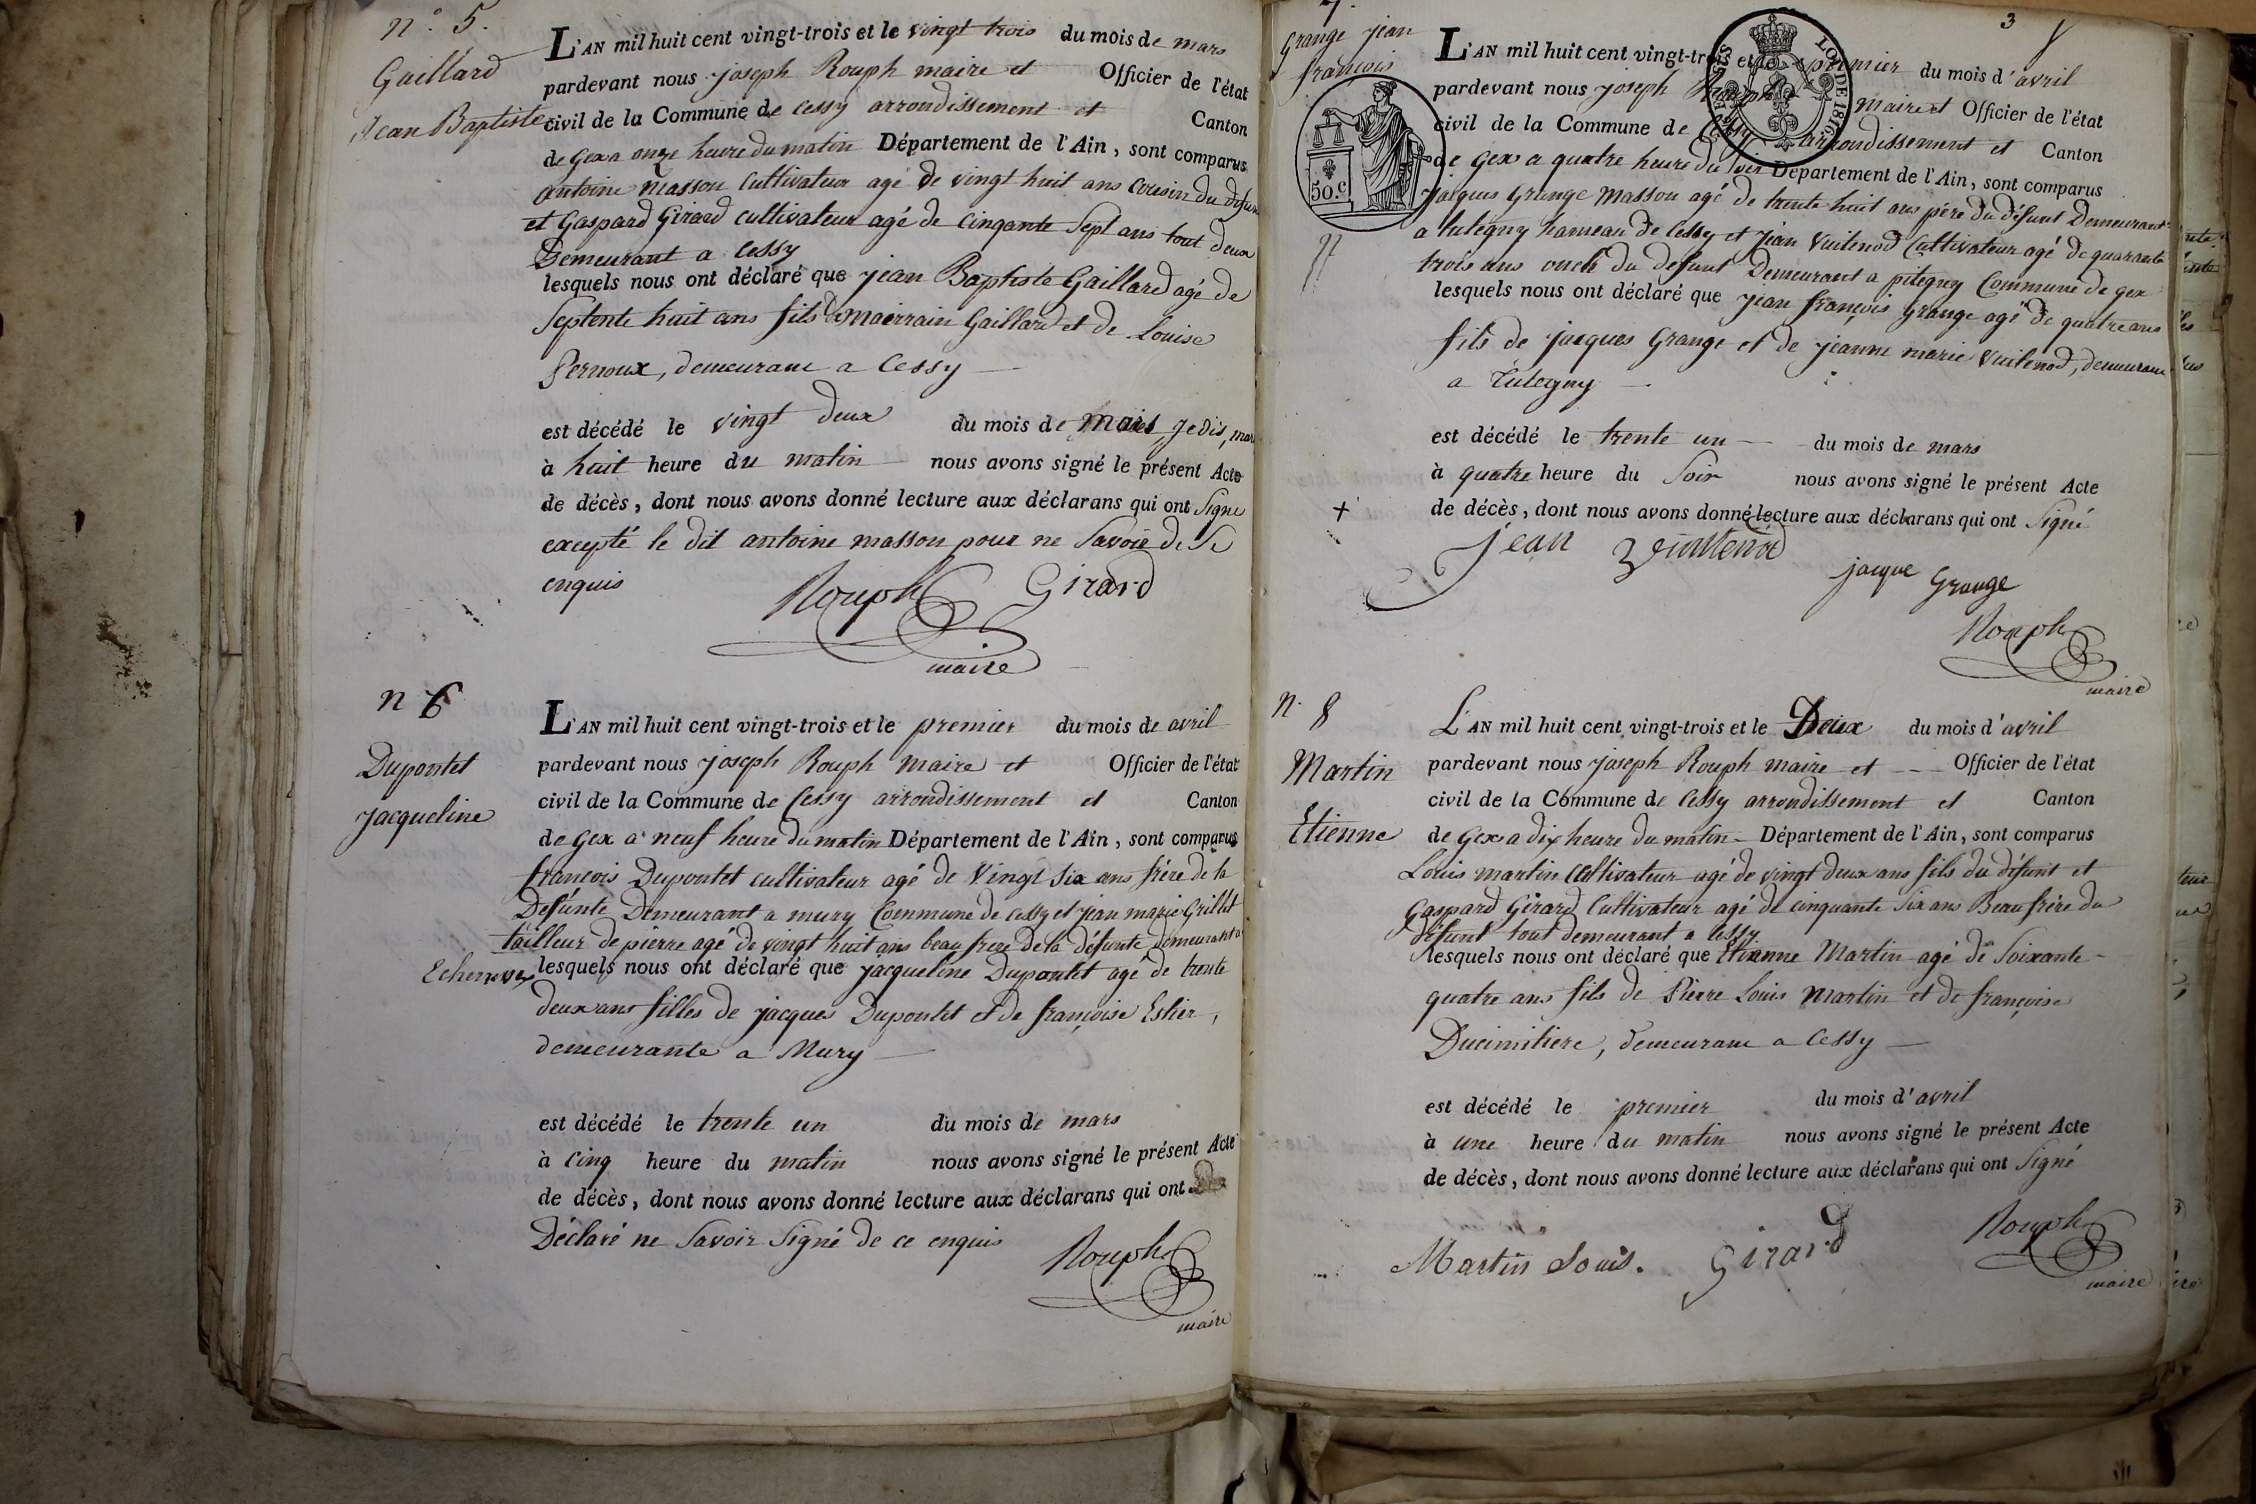 n.° 5.
Gaillard
Jean Baptiste
L'AN mil huit cent vingt-trois et le vingt trois du mois de mars
pardevant nous joseph Rouph maire et Officier de l'état
civil de la Commune de Cessy arrondissement et Canton
de Gex a onze heure du matin Département de l'Ain, sont comparus
antoine masson Cultivateur agé de vingt huit ans Cousin du défunt
et Gaspard Girard cultivateur agé de cinqante Sept ans tout deux
Demeurant a Cessy
lesquels nous ont déclaré que jean Baptiste Gaillard agé de
Septente huit ans fils de Gaillard et de Louise
Pernoux, demeurant a Cessy
est décédé le vingt deux du mois de mars, je dis, mars
à huit heure du matin nous avons signé le présent Acte
de décès, dont nous avons donné lecture aux déclarans qui ont Signé
excepté le dit antoine masson pour ne Savoir de Ce
enquis
Rouph Girard
maire
n 6
Dupontet
jacqueline
L'AN mil huit cent vingt-trois et le premier du mois de avril
pardevant nous joseph Rouph maire et Officier de l'état
civil de la Commune de Cessy arrondissement et Canton
de Gex a neuf heure du matin Département de l'Ain, sont comparus
francois Dupontet cultivateur agé de Vingt Six ans frére de la
Defúnte Demeurant a mury Commune de Cessy et jean marie Grillet
tailleur de pierre agé de vingt huit ans beau frere de la défunte demeurant a
Echenevex lesquels nous ont déclaré que jacqueline Dupontet agé de trente
deux ans filles de jacques Dupontet et de françoise Estier,
demeurante a Mury
est décédé le trente un du mois de mars
à cinq heure du matin nous avons signé le présent Acte
de décès, dont nous avons donné lecture aux déclarans qui ont
Déclaré ne Savoir Signé de ce enquis
Rouph
maire
7.
3
Grange jean
francois
L'AN mil huit cent vingt-trois et le premier du mois d'avril
pardevant nous joseph Rouph maire et Officier de l'état
civil de la Commune de Cessy arrondissement et Canton
de Gex a quatre heure du Soir Département de l'Ain, sont comparus
jacques Grange Masson agé de trente huit ans pére du défunt Demeurant
a tutegny hameau de Cessy et jean Vuitenod Cultivateur agé de quarante
trois ans oncle du defunt Demeurant a pitegny Commune de gex
lesquels nous ont déclaré que jean françois Grange agé de quatre ans
fils de jacques Grange et de jeanne marie Vuitenod, demeurant
a Tutegny
est décédé le trente un du mois de mars
à quatre heure du Soir nous avons signé le présent Acte
de décès, dont nous avons donné lecture aux déclarans qui ont Signé
jean Vuittenod
jacque Grange
Rouph
maire
50.c
LOI DE 1816
n. 8
Martin
Etienne
L'AN mil huit cent vingt-trois et le Deux du mois d'avril
pardevant nous joseph Rouph maire et Officier de l'état
civil de la Commune de Cessy arrondissement et Canton
de Gex a dix heure du matin Département de l'Ain, sont comparus
Louis martin Cultivateur agé de vingt deux ans fils du défunt et
Gaspard Girard Cultivateur agé de cinquante Six ans Beaufrére du
défunt tout demeurant a Cessy
lesquels nous ont déclaré que Etienne Martin agé de Soixante
quatre ans fils de Pierre Louis Martin et de françoise
Ducimitiere, demeurant a Cessy
est décédé le premier du mois d'avril
à une heure du matin nous avons signé le présent Acte
de décès, dont nous avons donné lecture aux déclarans qui ont Signé
Martin Louis. Girard
Rouph
maire